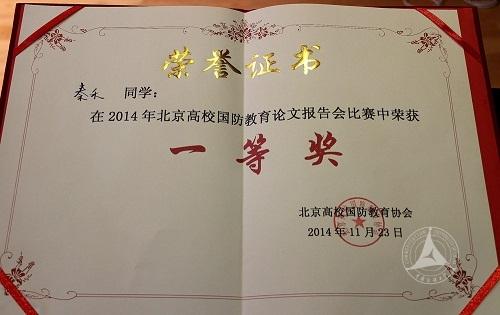 荣誉证书
秦禾 同学:
在2014年北京高校国防教育论文报告会比赛中荣获
一等奖
北京高校国防教育协会
2014年11月23日